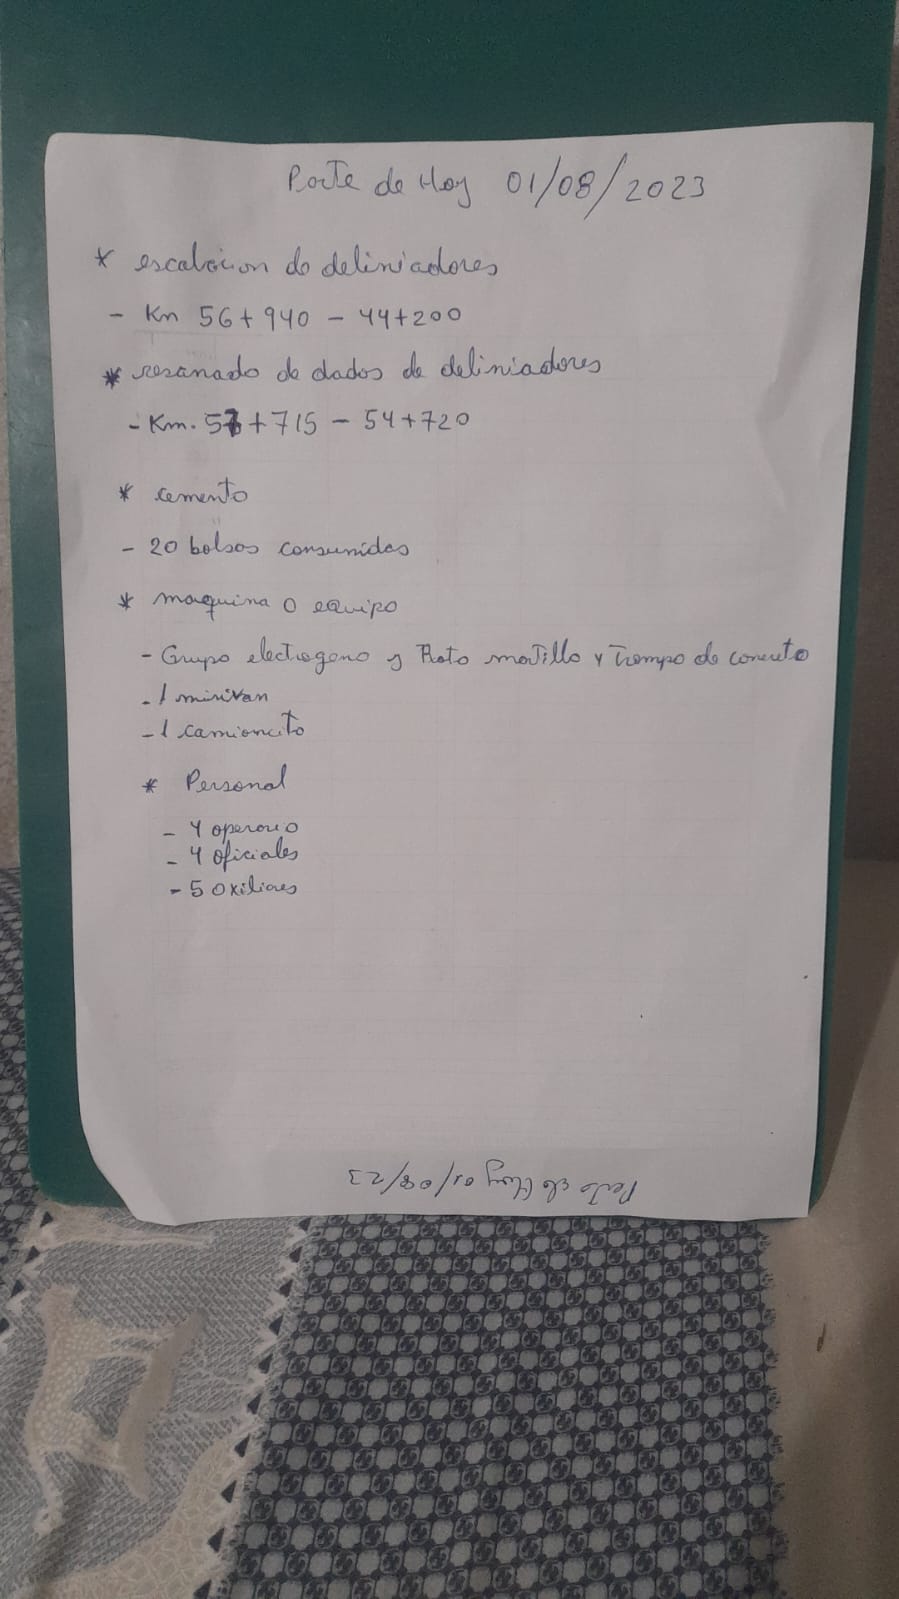 Parte de Hoy 01/08/2023
* escabacion de deliniadores
- Km 56+940 - 44+200
* resanado de dados de deliniadores
- Km. 57+715 - 54+720
* cemento
- 20 bolsas consumidas
* maquina o equipo
- Grupo electrogeno y Roto martillo y Trompo de concreto
- 1 minivan
- 1 camioncito
* Personal
- 4 operario
- 4 oficiales
- 5 oxiliares
Parte de Hoy 01/08/23